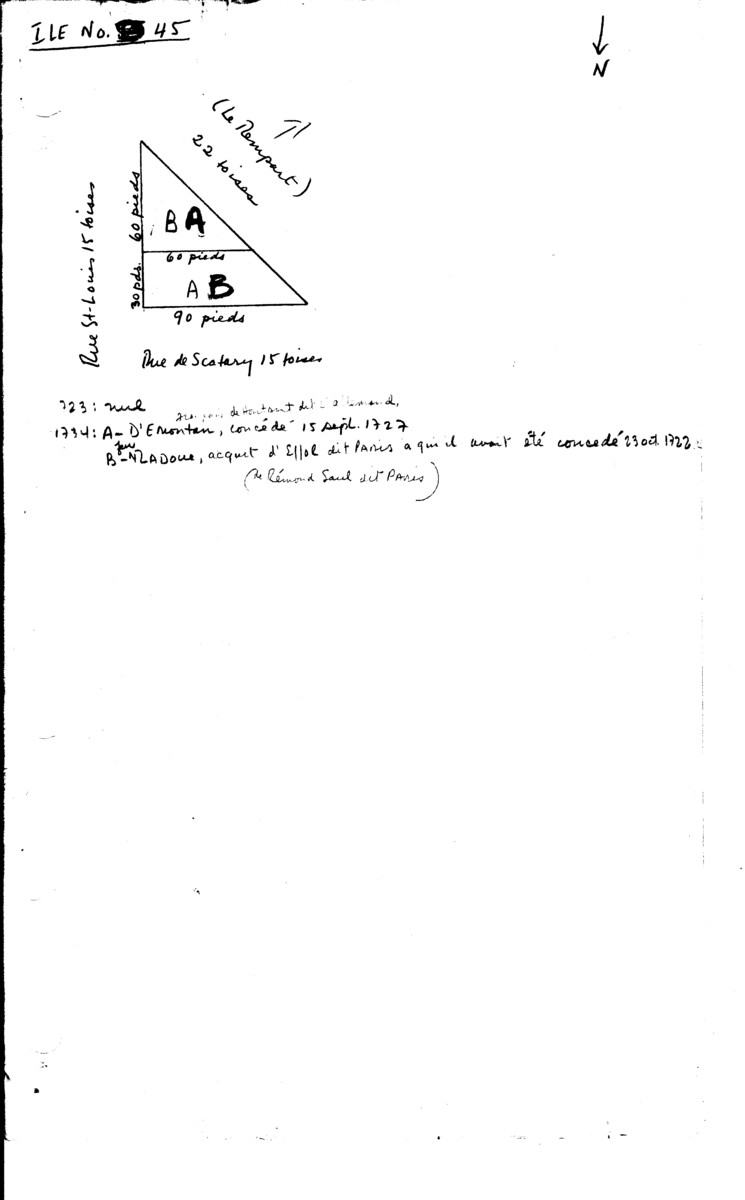 ILE No. 45
N
(Le Rempart)
22 toises
Rue St-Louis 15 toises
60 pieds
B A
60 pieds
30 pds.
A B
90 pieds
Rue de Scatary 15 toises
723: nul
dit L'allemand,
1734: A- D'Emontan, concédé 15 sept. 1727
B- LADOUE, acquet d' dit PARIS a qui il avait été concedé 23 oct. 1722
(de Rémond Saul dit PARIS)